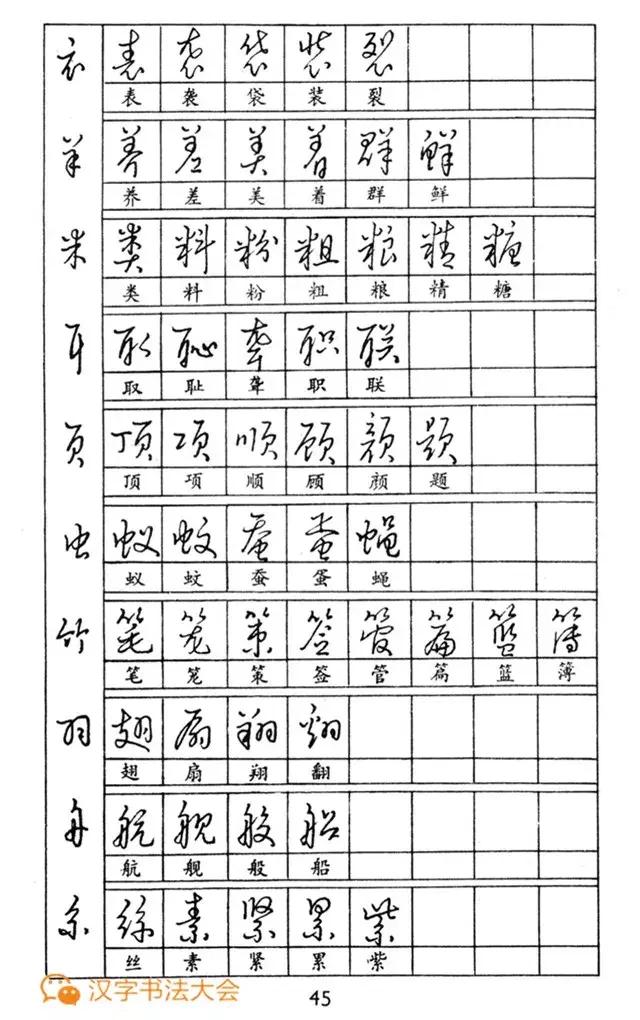 衣 表 袭 袋 装 裂
表 袭 袋 装 裂
羊 养 差 美 着 群 鲜
养 差 美 着 群 鲜
米 类 料 粉 粗 粮 精 糖
类 料 粉 粗 粮 精 糖
耳 取 耻 聋 职 联
取 耻 聋 职 联
页 顶 项 顺 顾 颜 题
顶 项 顺 顾 颜 题
虫 蚁 蚊 蚕 蛋 蝇
蚁 蚊 蚕 蛋 蝇
竹 笔 笼 策 签 管 篇 篮 簿
笔 笼 策 签 管 篇 篮 簿
羽 翅 扇 翔 翻
翅 扇 翔 翻
舟 航 舰 般 船
航 舰 般 船
糸 絲 素 紧 累 紫
丝 素 紧 累 紫
汉字书法大会
45